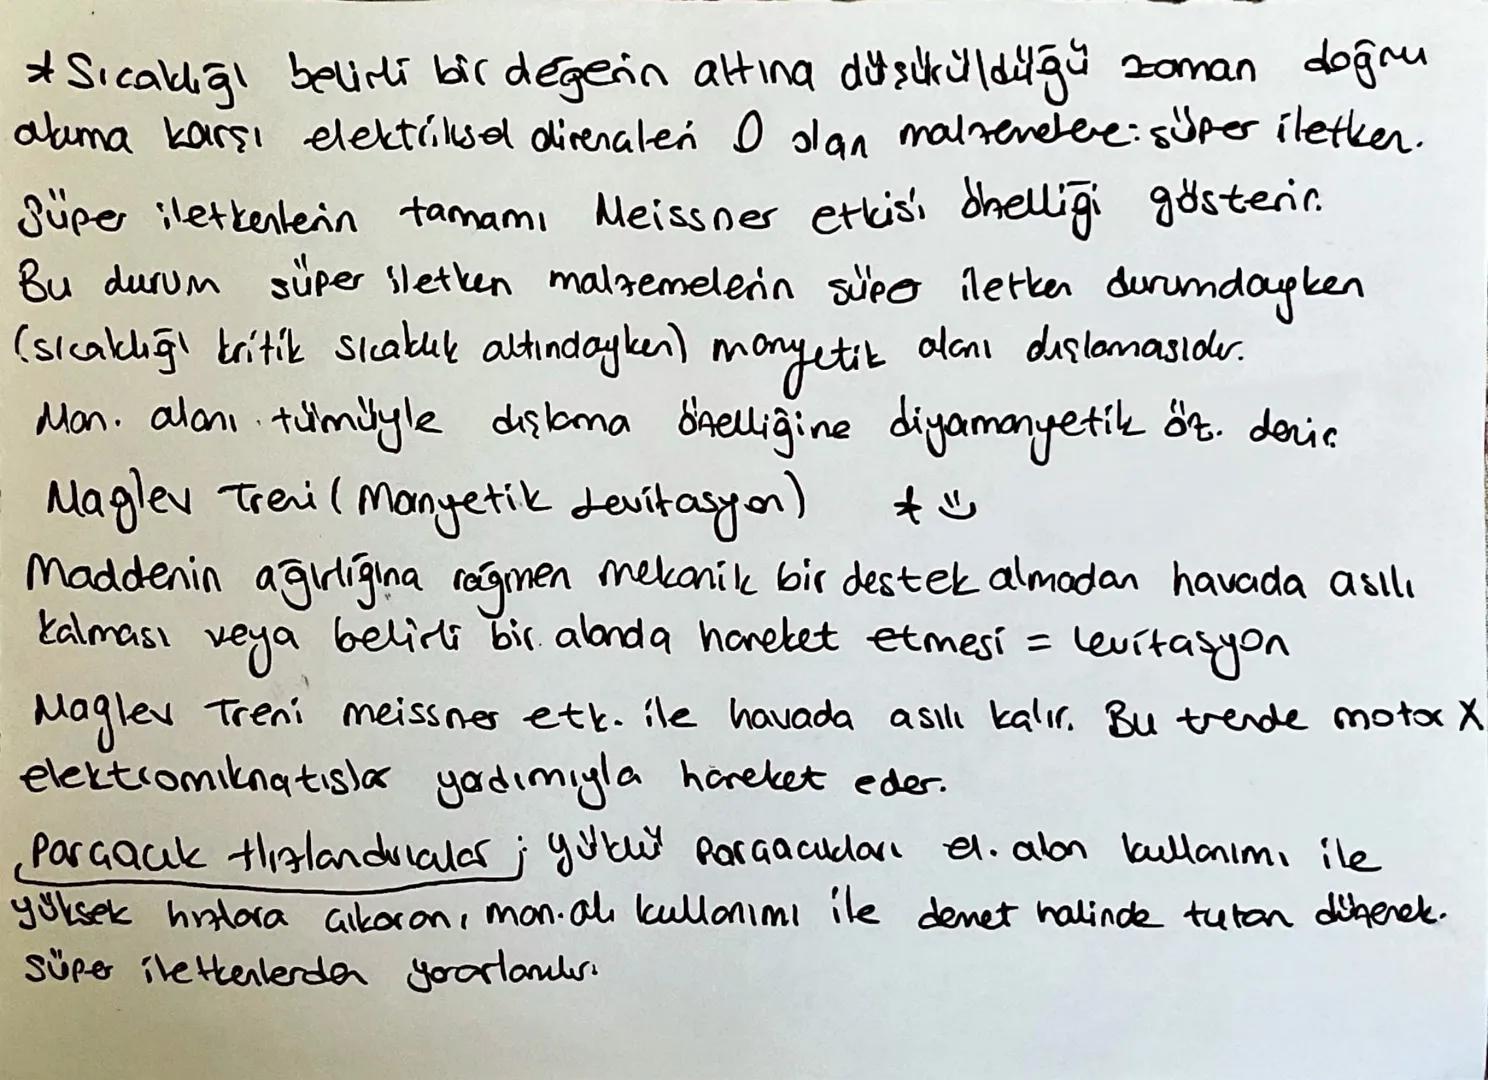 * Sıcaklığı belirli bir değerin altına düşürüldüğü zaman doğru
akıma karşı elektriksel dirençleri 0 olan malzemelere: süper iletken.
Süper iletkenlerin tamamı Meissner etkisi özelliği gösterir.
Bu durum süper iletken malzemelerin süper iletken durumdayken
(sıcaklığı kritik sıcaklık altındayken) manyetik alanı dışlamasıdır.
Man. alanı tümüyle dışlama özelliğine diyamanyetik öz. denir
Maglev Treni (Manyetik Levitasyon) *
Maddenin ağırlığına rağmen mekanik bir destek almadan havada asılı
kalması veya belirli bir alanda hareket etmesi = levitasyon
Maglev Treni meissner etk. ile havada asılı kalır. Bu trende motor X
elektromıknatıslar yardımıyla hareket eder.
Parçacık Hızlandırıcılar ; yüklü parçacıkları el. alan kullanımı ile
yüksek hızlara çıkaran, man. al. kullanımı ile demet halinde tutan düzenek.
süper iletkenlerden yararlanılır.